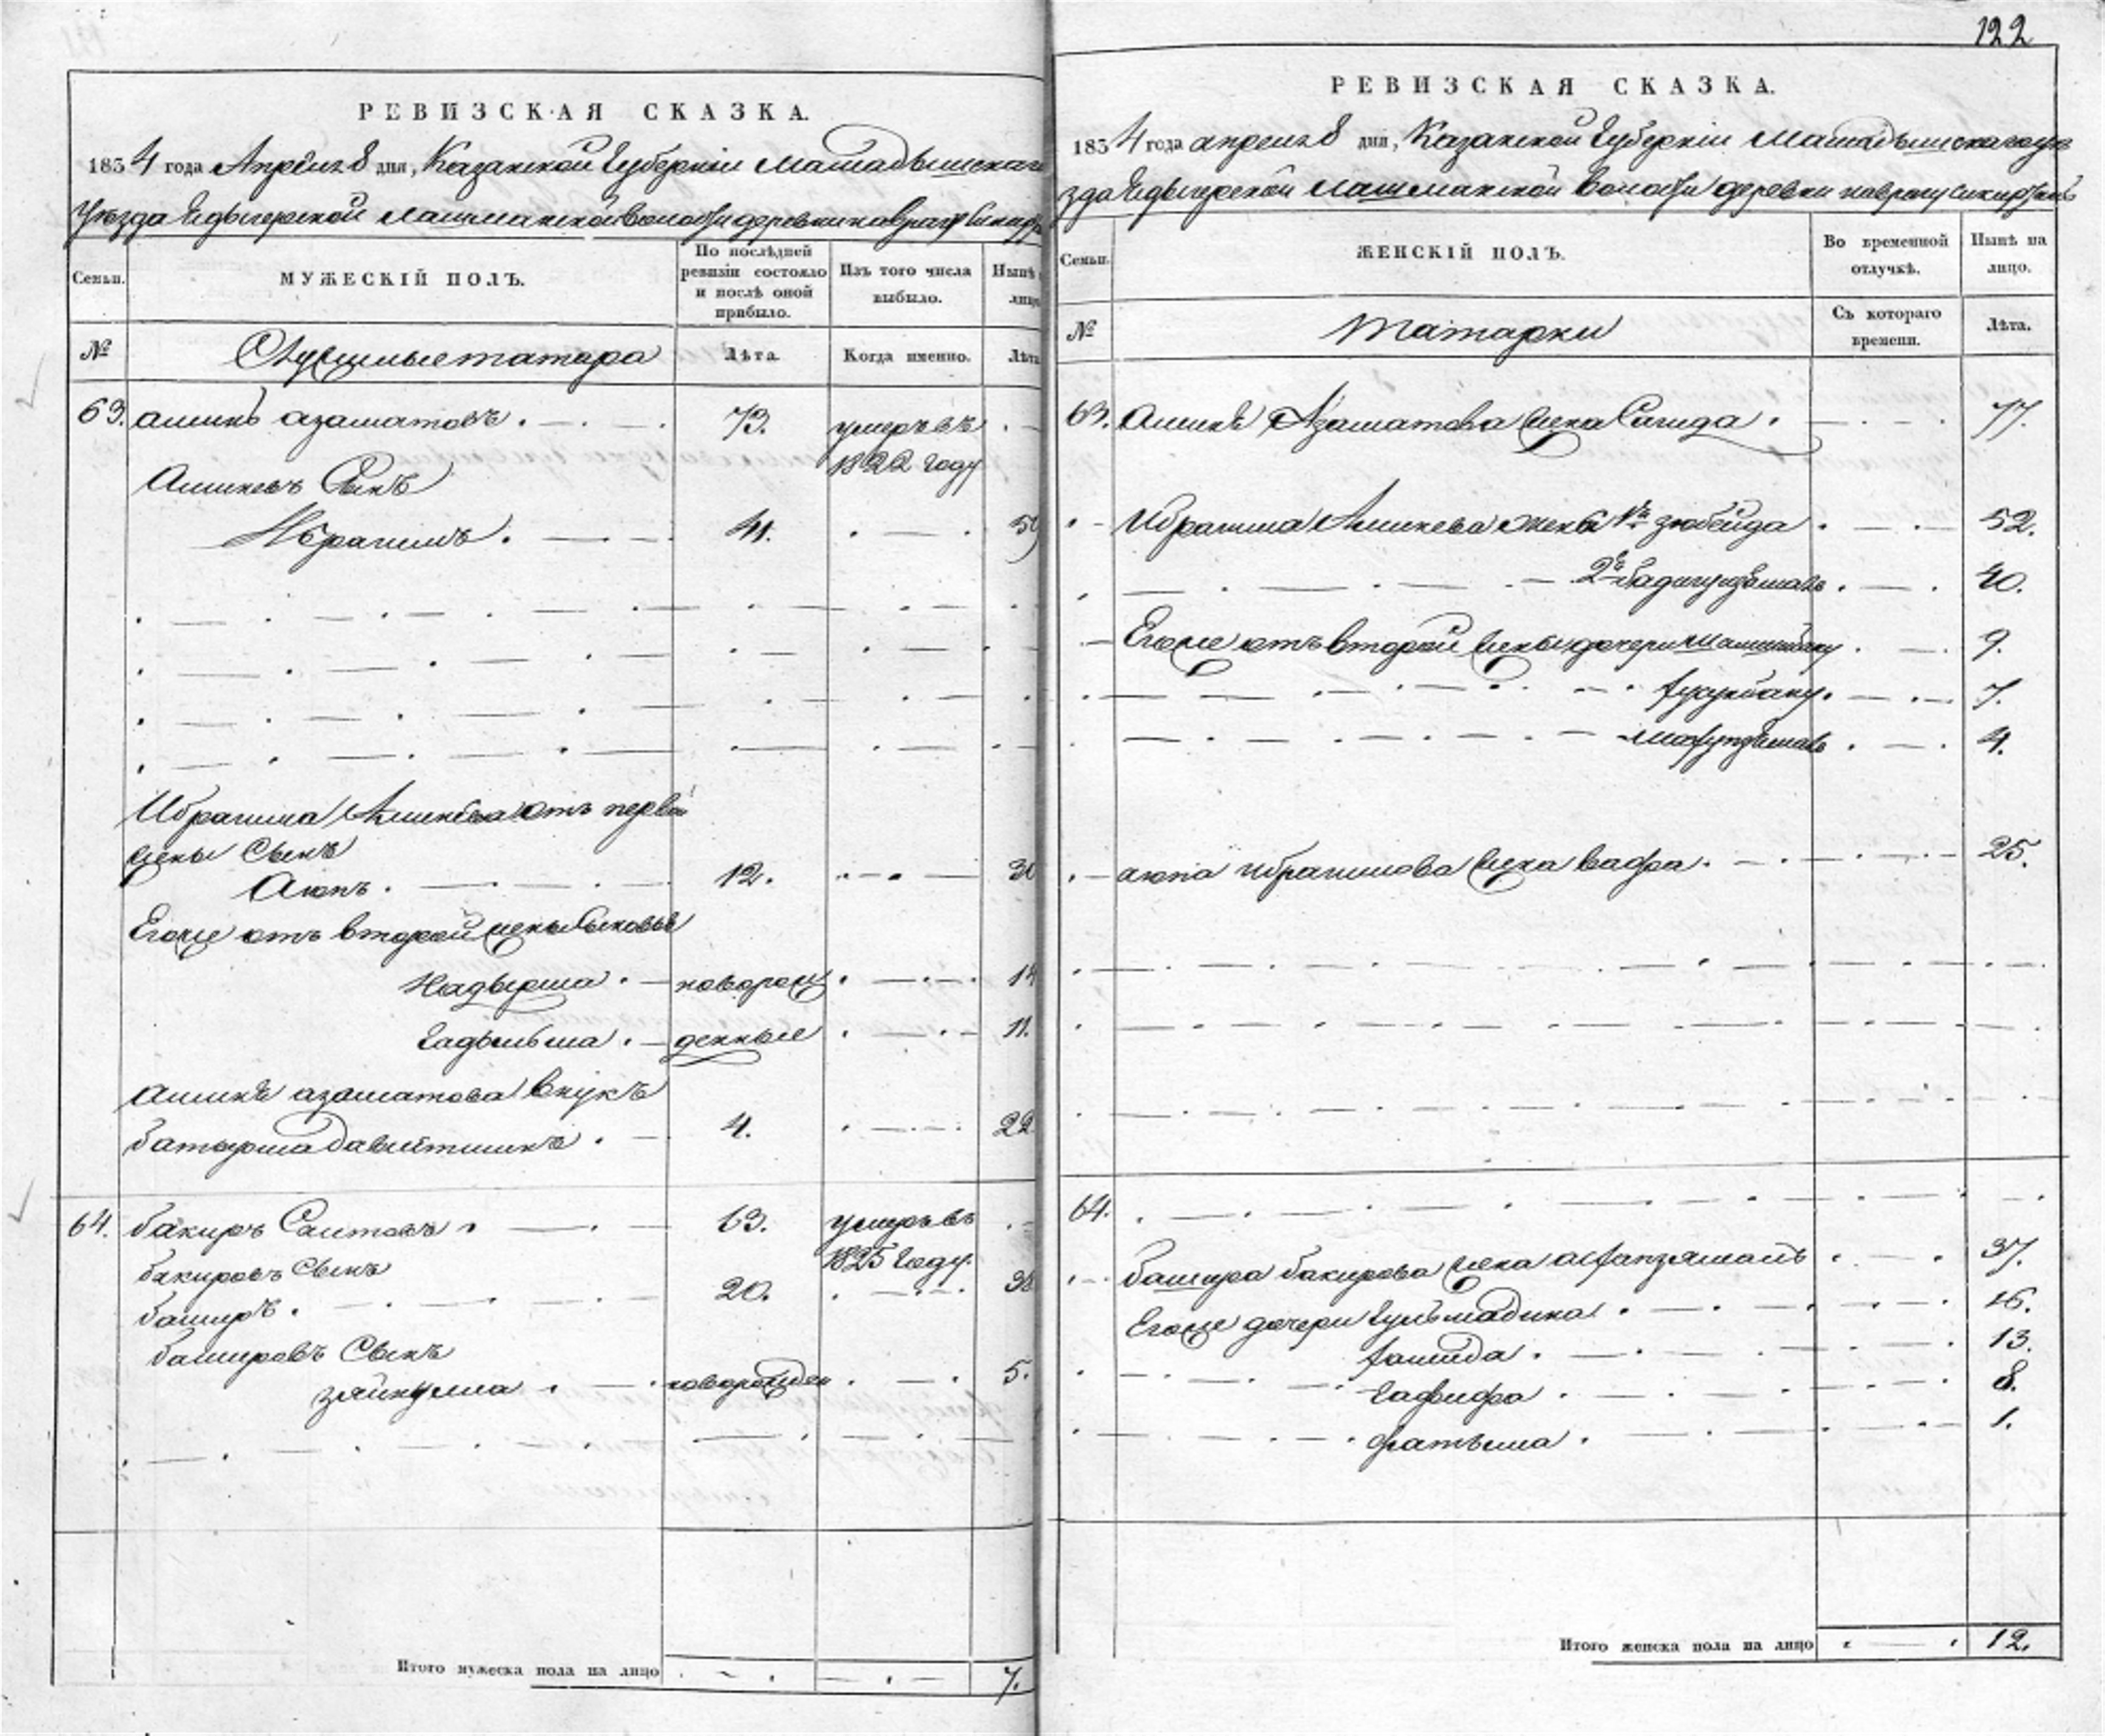 122
РЕВИЗСКАЯ СКАЗКА.
1834 года Апреля 8 дня, Казанской Губернии Мамадышскаго
Уезда Едыгерской лашманской волости деревни
Семьи.
МУЖЕСКІЙ ПОЛЪ.
По послѣдней ревизіи состояло и послѣ оной прибыло.
Изъ того числа выбыло.
Нынѣ
лицо
№
Служилые татара
Лѣта
Когда именно.
Лѣта
63. Амикъ Азаматовъ. 73. умеръ въ
1822 году
Амикевъ Сынъ
Ибрагимъ. 41. 59
Ибрагима Амикева отъ первой
жены Сынъ
Аюпъ. 12. 30
Егоже отъ второй жены Сыновья
Надырша. новорож 14
Гадыльша. денные 11.
Амикъ Азаматова внукъ
батырша 4. 22
64. бакиръ Саитовъ. 63. умеръ въ
1825 году.
бакировъ Сынъ
баширъ. 20. 38
башировъ Сынъ
новорожден 5.
Итого мужеска пола на лицо 7.
РЕВИЗСКАЯ СКАЗКА.
1834 года апреля 8 дня, Казанской Губерніи Мамадышскаго уе
зда Едыгерской лашманской волости деревни
Семьи.
ЖЕНСКІЙ ПОЛЪ.
Во временной отлучкѣ.
Нынѣ на лицо.
№
Татарки
Съ котораго времени.
Лѣта.
63. Амикъ Азаматова жена Сагида. 77.
Ибрагима Амикева жены 1я зюбейда. 52.
2я 40.
Егоже отъ второй жены дочери 9.
7.
4.
аюпа ибрагимова жена вафа. 25.
64.
башира бакирова жена 37.
Егоже дочери 16.
13.
8.
фатыма. 1.
Итого женска пола на лицо 12.